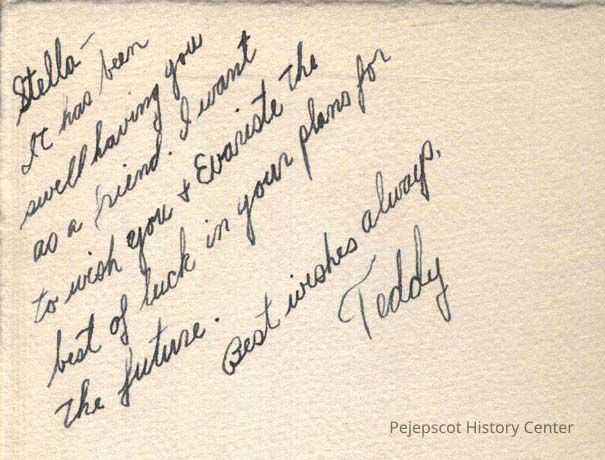 Stella -
It has been
swell having you
as a friend. I want
to wish you + Evariste the
best of luck in your plans for
the future.
Best wishes always,
Teddy
Pejepscot History Center